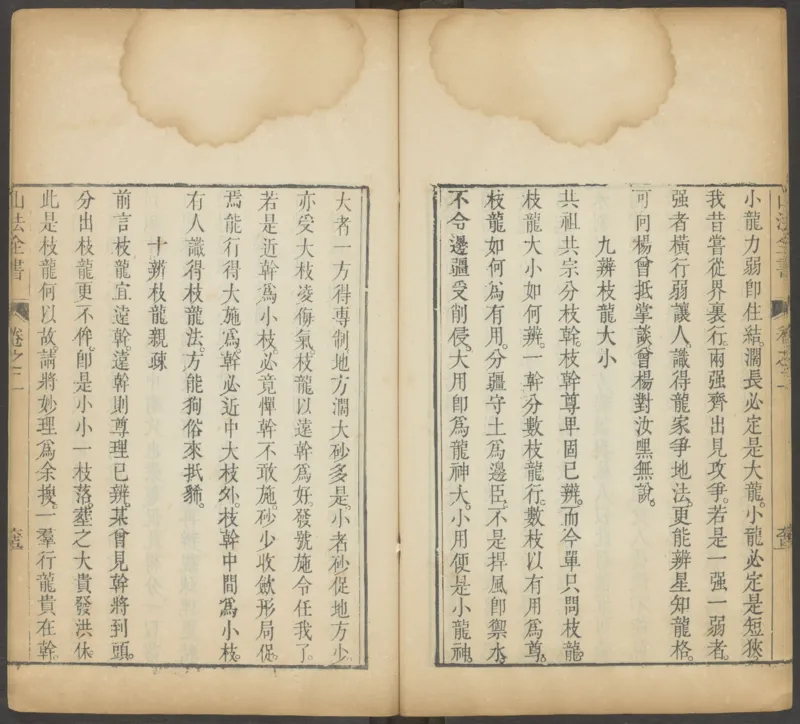 小龍力弱卽住結。濶長必定是大龍。小龍必定是短狹。
我昔嘗從界裏行。兩强齊出見攻爭。若是一强一弱者。
强者橫行弱讓人。識得龍家爭地法。更能辨星知龍格。
可問楊曾抵掌談。曾楊對汝嘿無說。
九辨枝龍大小
共祖共宗分枝幹。枝幹尊卑固已辨。而今單只問枝龍。
枝龍大小如何辨。一幹分數枝龍行。數枝以有用爲尊。
枝龍如何爲有用。分疆守土爲邊臣。不是捍風卽禦水。
不令邊疆受削侵。大用卽爲龍神大。小用便是小龍神。
大者一方得專制地方濶大砂多是。小者砂促地方少。
亦受大枝凌侮氣。枝龍以遠幹爲好。發號施令任我了。
若是近幹爲小枝。必竟憚幹不敢施。砂少收歛形局促。
焉能行得大施爲。幹必近中大枝外。枝幹中間爲小枝。
有人識得枝龍法。方能狥俗來扺
十辨枝龍親疎
前言枝龍宜遠幹。遠幹則尊理已辨。某曾見幹將到頭。
分出枝龍更不侔。卽是小小一枝落。塟之大貴發洪休。
此是枝龍何以故。請將妙理爲余搜。一羣行龍貴在幹。
山法全書
卷之二